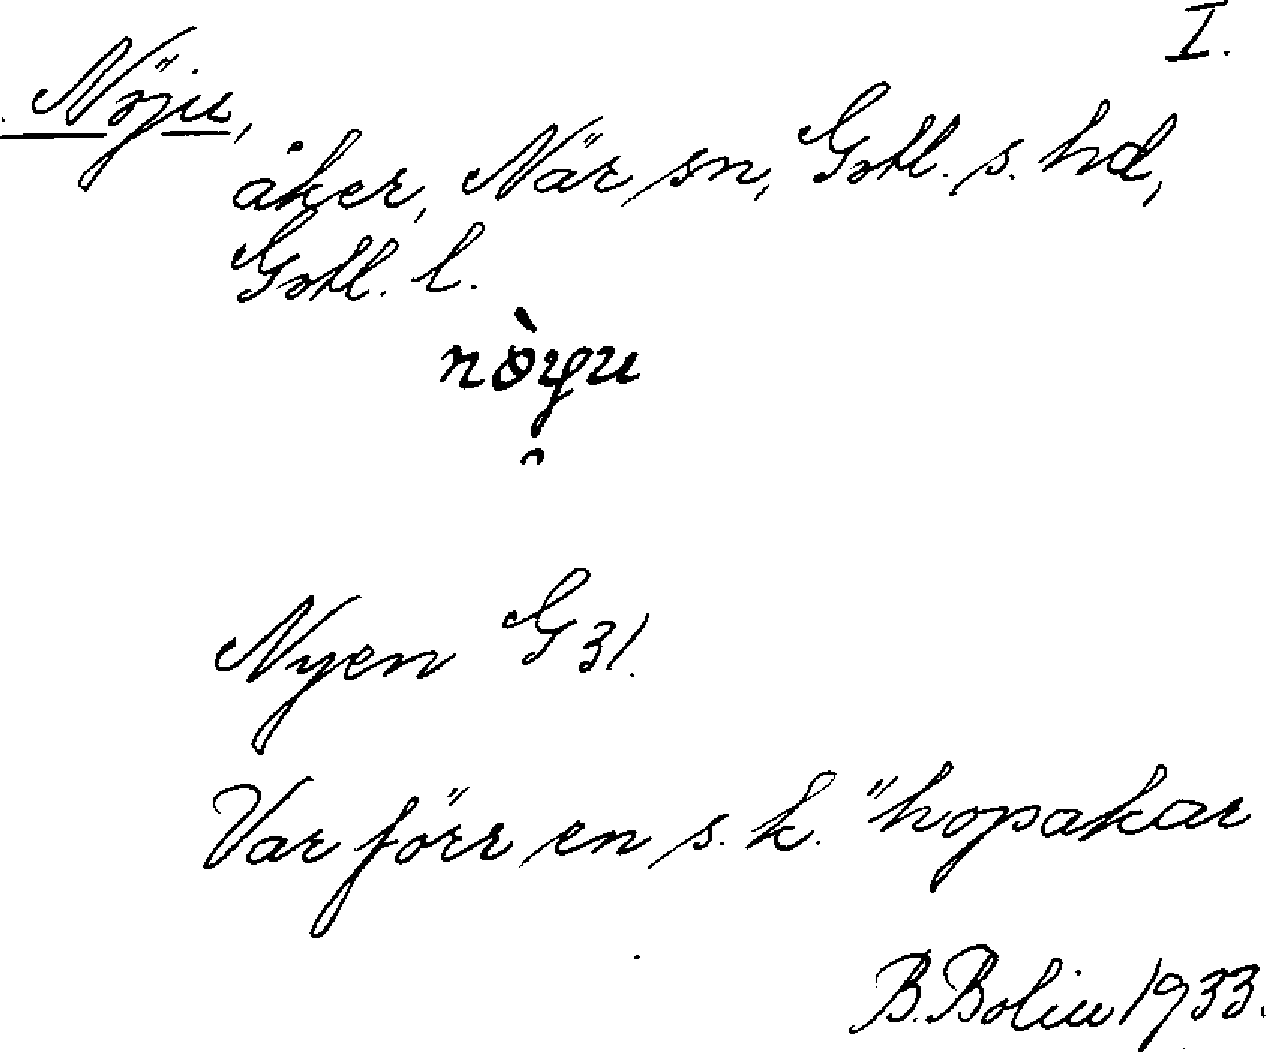 I.
Nöju,
åker, När sn, Gotl. s. hd,
Gotl. l.
Nyen G 31.
Var förr en s. k. "hopakar
B. Bolin 1933.